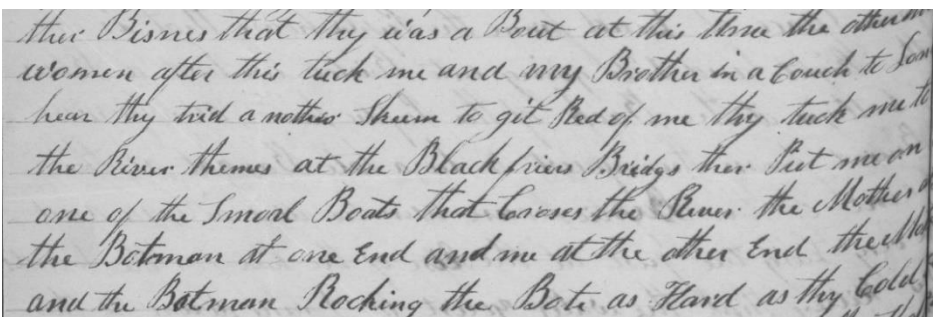 ther Bisnes that thy was a Bout at this time the other
women after this tuck me and my Brother in a Couch to
hear thy trid a nother Skeem to git Red of me thy tuck me to
the River themes at the Black friers Bridgs ther Put me on
one of the Smorl Boats that Croses the River the Mother
the Botman at one End and me at the other End the
and the Botman Rocking the Bote as Hard as thy Cold